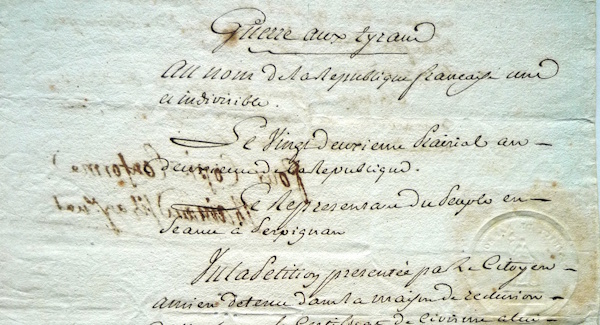 Guerre aux tyrans
Au nom de la Republique francaise une
et indivisible.
Le Vingt deuxieme Prairial an
Deuxieme de la Republique.
Le Representant du Peuple en
Seance à Perpignan
Vu la Petition presentée par le Citoyen
amien detenu dans la maison de reclusion
le Certificat de Civisme
Pour Copie Conforme